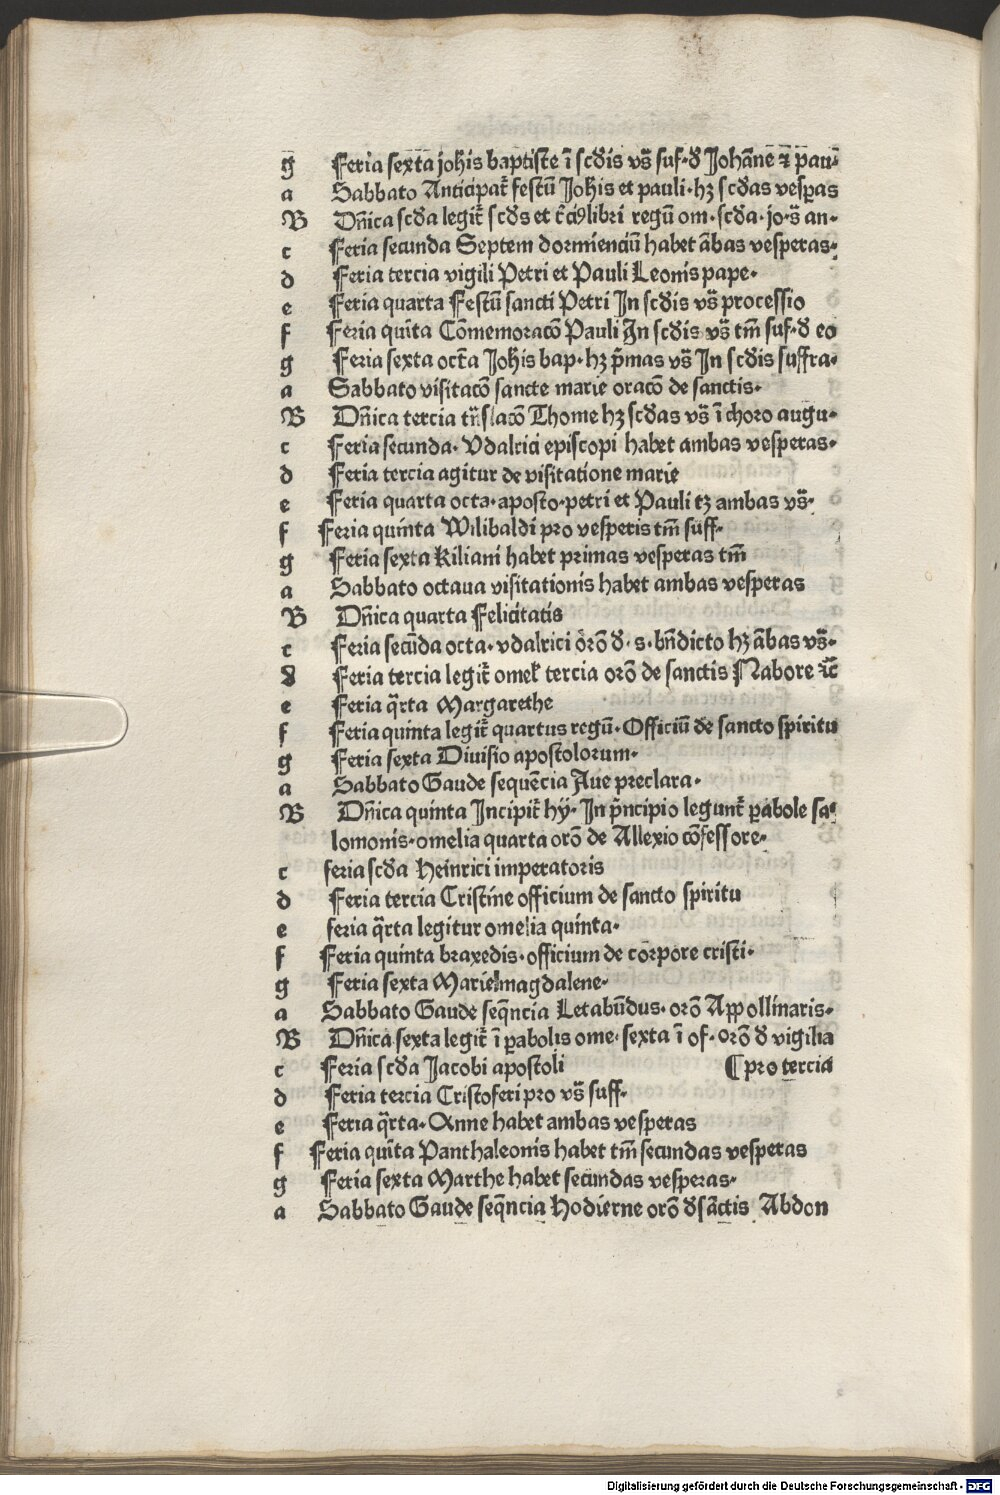 g Feria sexta joh̄is baptiste ī scd̄is vs̄ suf·d̄ Johāne ⁊ pau-
a Sabbato Anticipat̄ festū Joh̄is et pauli·hꝫ scd̄as vesp̄as
B Dn̄ica scd̄a legit̄ scd̄s et t̄ciꝰ libri regū om·scd̄a·jo·s̄ an-
c Feria secunda Septem dormienciū habet ābas vesperas·
d Feria tercia vigili Petri et Pauli Leonis pape·
e Feria quarta Festū sancti Petri In scd̄is vs̄ processio
f Feria quīta Cōmemoracō Pauli In scd̄is vs̄ tm̄ suf·d̄ eo
g Feria sexta octā Joh̄is bap·hꝫ p̄mas vs̄ In scd̄is suffra-
a Sabbato visitacō sancte marie oracō de sanctis·
B Dn̄ica tercia tn̄slacō Thome hꝫ scd̄as vs̄ ī choro augu-
c Feria secunda·Vdalrici episcopi habet ambas vesperas·
d Feria tercia agitur de visitatione marie
e Feria quarta octa·aposto·petri et Pauli tꝫ ambas vs̄·
f Feria quinta Wilibaldi pro vesperis tm̄ suff·
g Feria sexta Kiliani habet primas vesperas tm̄
a Sabbato octaua visitationis habet ambas vesperas
B Dn̄ica quarta Felicitatis
c Feria secūda octa·vdalrici orō d̄·s·bn̄dicto hꝫ ābas vs̄·
d Feria tercia legit̄ omel̄ tercia orō de sanctis Nabore ⁊c̄
e Feria q̄rta Margarethe
f Feria quinta legit̄ quartus regū·Officiū de sancto spiritu
g Feria sexta Diuisio apostolorum·
a Sabbato Gaude sequēcia Aue preclara·
B Dn̄ica quinta Incipit̄ hy̅·In p̄ncipio legunt̄ ꝑabole sa-
lomonis·omelia quarta orō de Allexio cōfessore·
c feria scd̄a Heinrici imperatoris
d Feria tercia Cristine officium de sancto spiritu
e feria q̄rta legitur omelia quinta·
f Feria quinta braxedis·officium de corpore cristi·
g Feria sexta Marie magdalene·
a Sabbato Gaude seq̄ncia Letabūdus·orō Appollinaris·
B Dn̄ica sexta legit̄ ī ꝑabolis ome·sexta ī of·orō d̄ vigilia
c Feria scd̄a Jacobi apostoli ¶ pro tercia
d Feria tercia Cristoferi pro vs̄ suff·
e Feria q̄rta·Anne habet ambas vesperas
f Feria quīta Panthaleonis habet tm̄ secundas vesperas
g Feria sexta Marthe habet secundas vesperas·
a Sabbato Gaude seq̄ncia Hodierne orō d̄ sāctis Abdon
Digitalisierung gefördert durch die Deutsche Forschungsgemeinschaft - DFG